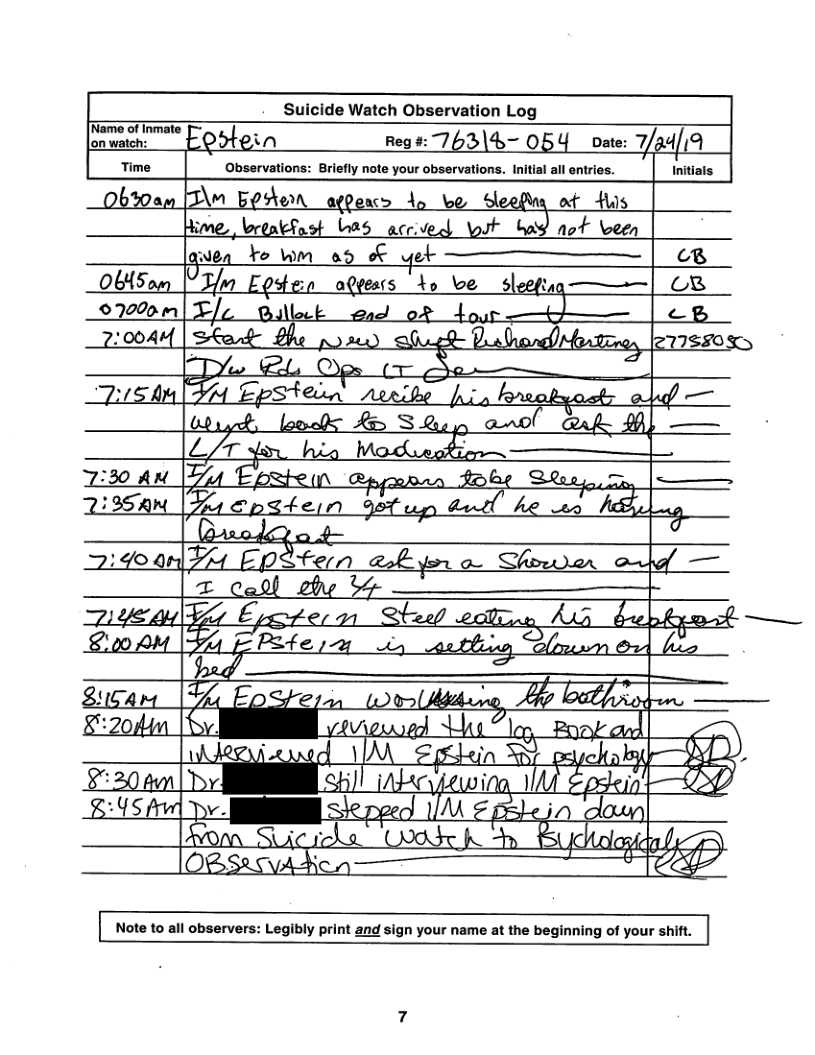 Suicide Watch Observation Log
Name of Inmate on watch: Epstein Reg #: 76318-054 Date: 7/24/19
Time Observations: Briefly note your observations. Initial all entries. Initials
0630am I\m Epstein appears to be sleeping at this
time, breakfast has arrived but has not been
given to him as of yet CB
0645am I/m Epstein appears to be sleeping CB
0700am I/c Bullock end of tour CB
7:00AM Start the New Shift Richard Martinez 27758050
Ops LT
7:15AM I/M EPStein recibe his breakfast and
went back to Sleep and ask the
L/T for his Madication
7:30 AM I/M EpStein appears to be Sleeping
7:35AM I/M EpStein got up and he is having
breakfast
7:40 AM I/M EPStein ask for a Shower and
I call the L/T
7:45AM I/M EpStein Steel eating his breakfast
8:00AM I/M EPStein is setting down on his
bed
8:15AM I/M EpStein was using the bathroom
8:20AM Dr. reviewed the log Book and
interviewed I/M Epstein for psychology
8:30AM Dr. still interviewing I/M Epstein
8:45AM Dr. stepped I/M Epstein down
from Suicide Watch to Psychological
OBServAtion
Note to all observers: Legibly print and sign your name at the beginning of your shift.
7